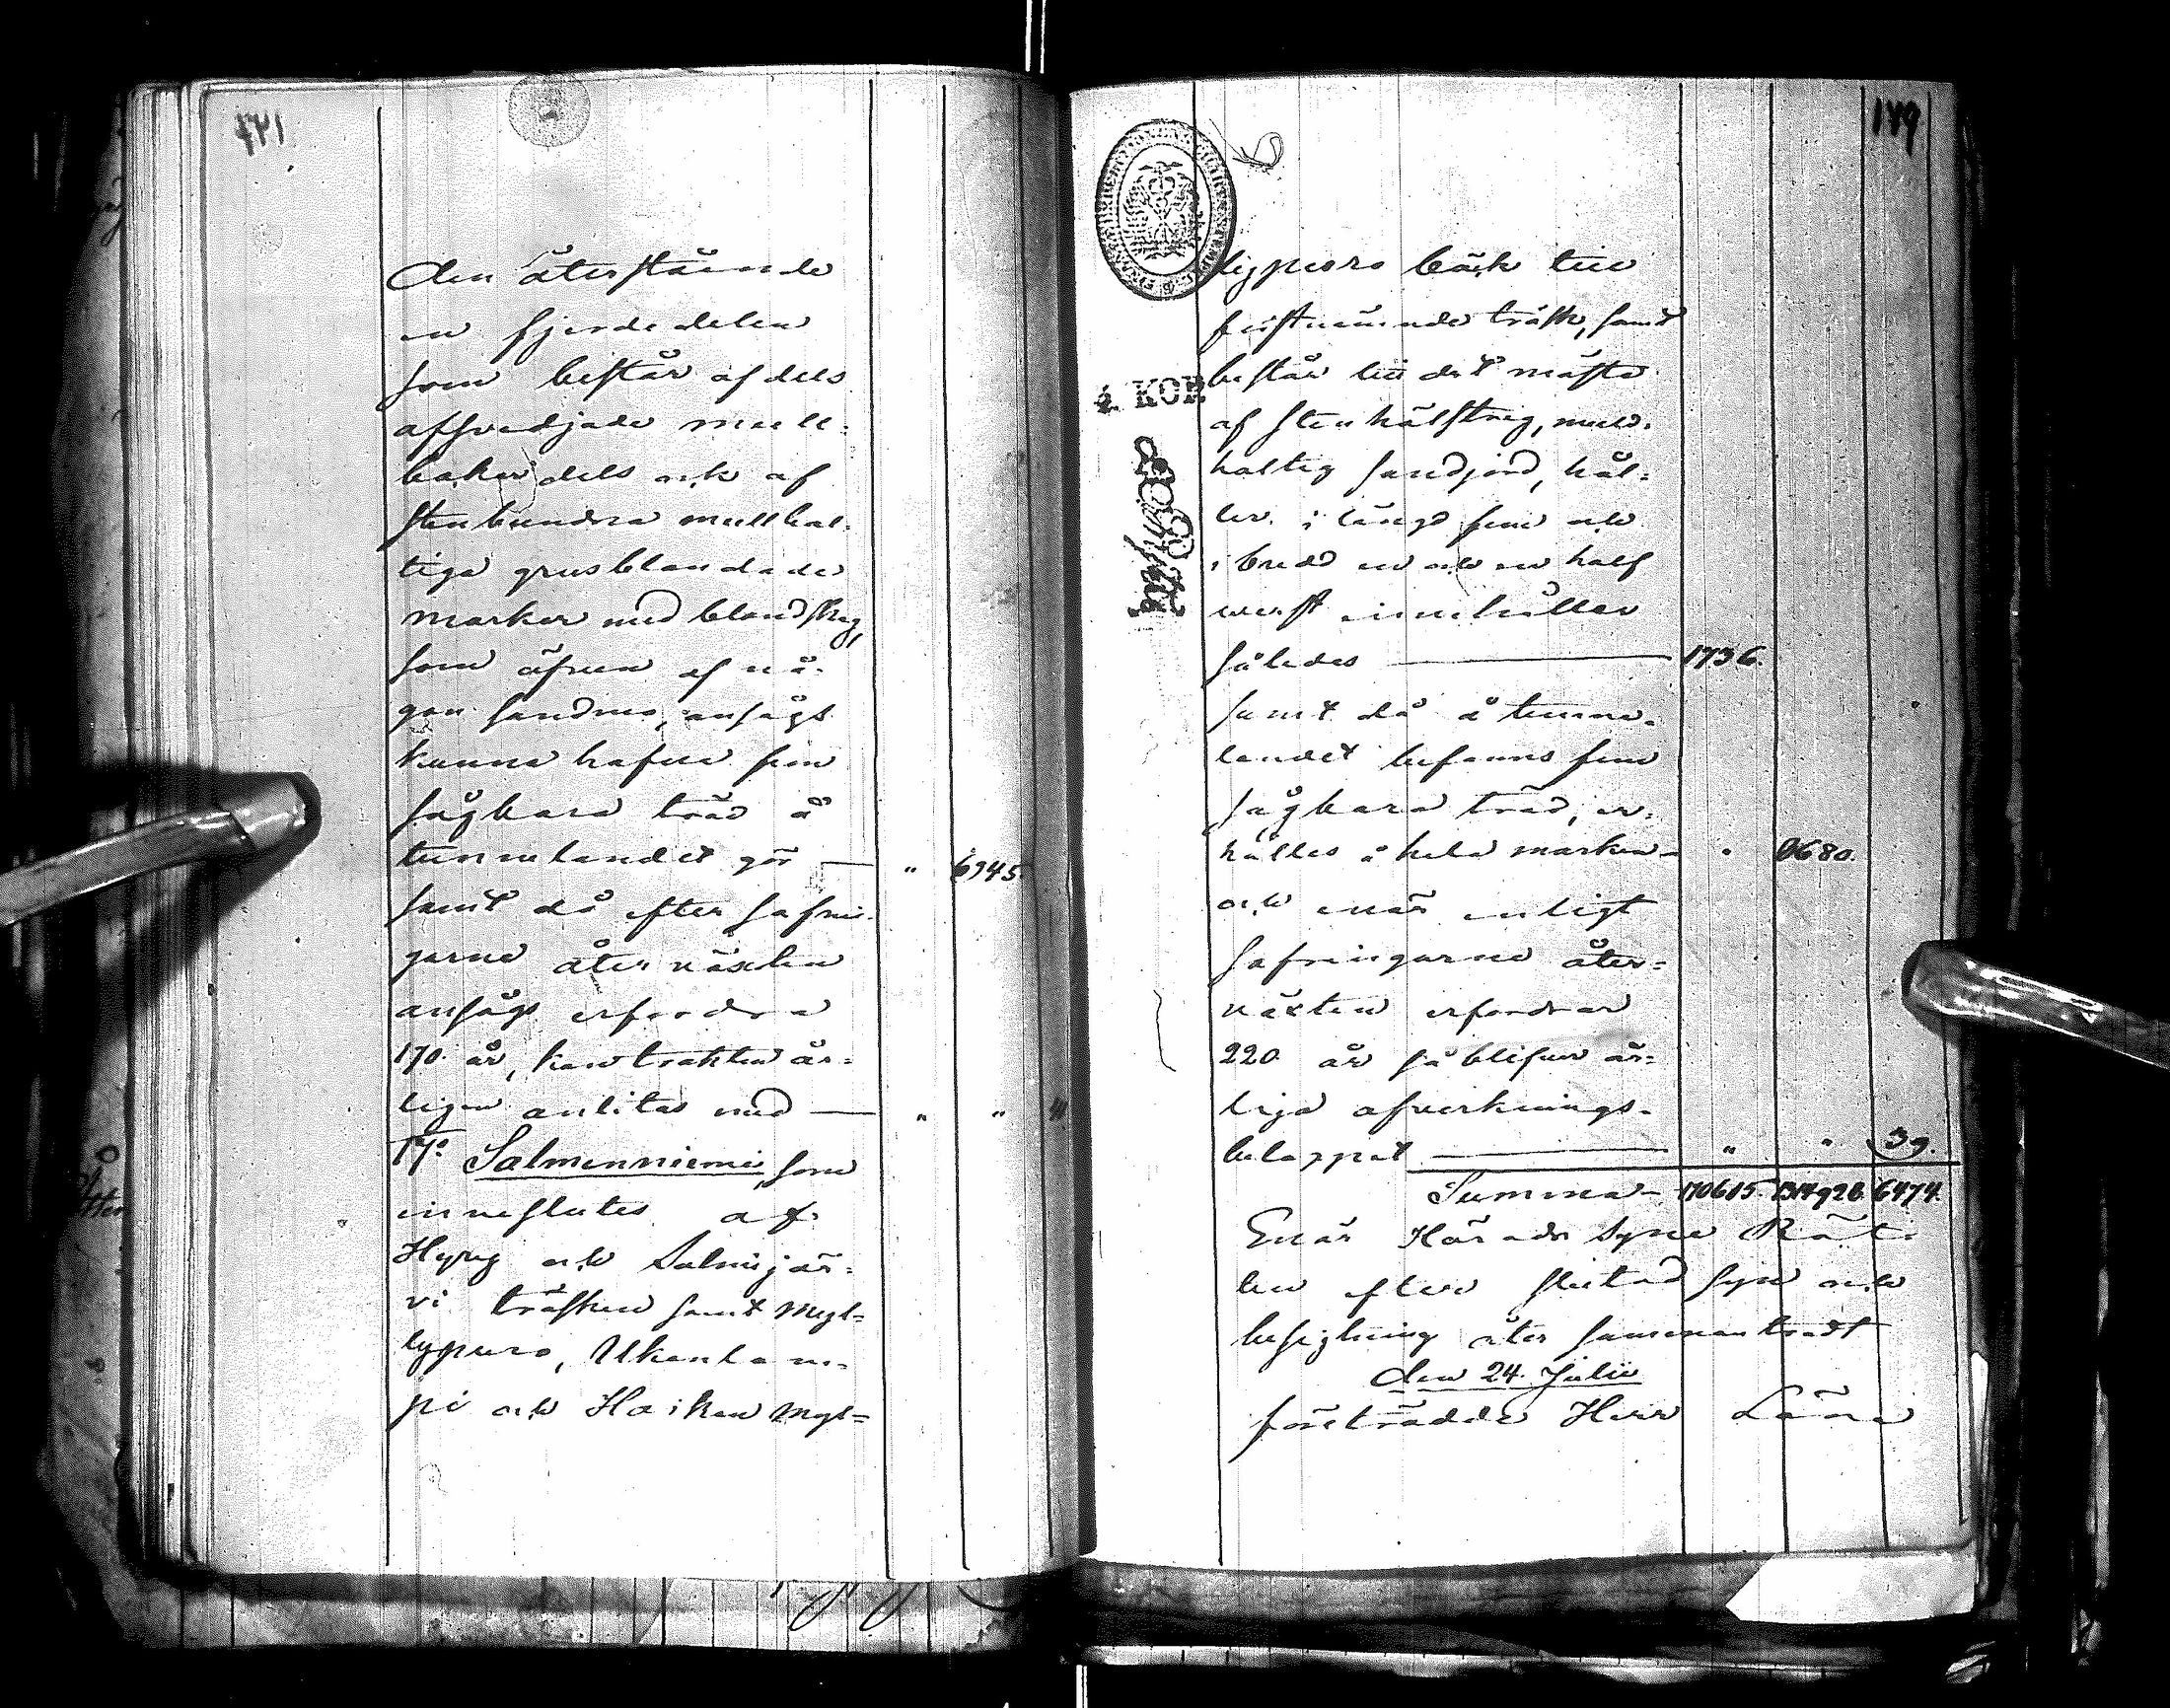 den återstående
en fjerdedelen
som består af dels
afsvedjade mull-
backar dels ock af
stenbundna mullhal-
tiga grusblandade
marker med blandskog,
som äfven af nå-
gon sandmo, ansågs
kunna hafva fem
sågbara träd å
tunnelandet gör — " 6945.
samt då efter hafrin-
garne återväxten
ansågs erfordra
170. år, kan trakten år-
ligen anlitas med — " "
17:o Salmenniemi, som
inneslutes af
Hyry och Salmijär-
vi träsken samt Myl-
lypuro, Ukonlam-
pi och Hoikan Myl-
179
lypuro bäck till
förstnämnde träsk, samt
består till det mästa
af stenhälftrig, mull-
haltig sandjord, hål-
ler i längd fem och
i bredd en och en half
werst innehåller
således — 1736.
samt då å tunne-
landet befanns fem
sågbara träd, er-
hålles å hela marken — " 8680.
och enär enligt
hafringarne åter-
växten erfordrar
220. år så blifver år-
liga afverknings-
beloppet — " " 39.
Summa — 170615. 6474.
Enär Härads Syne Rät-
ten efter slutad syn och
besigtning åter sammanträdt
den 24. Julii
företrädde Herr Läne